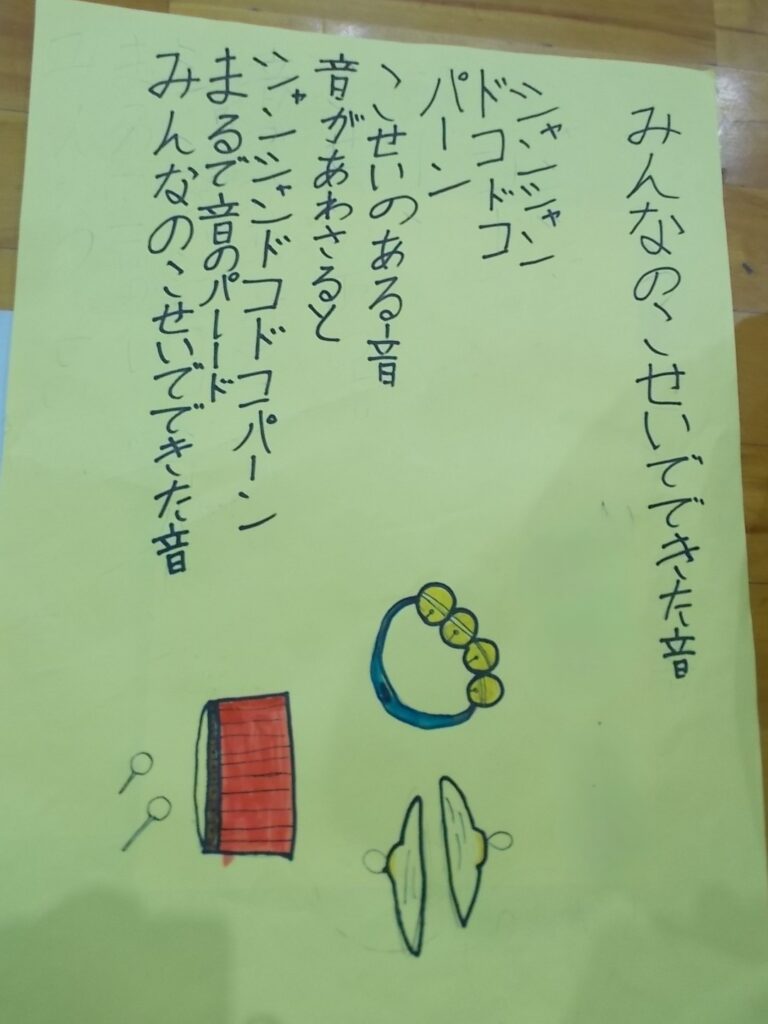 みんなのこせいでできた音
シャンシャン
ドコドコ
パーン
こせいのある音
音があわさると
シャンシャンドコドコパーン
まるで音のパレード
みんなのこせいでできた音